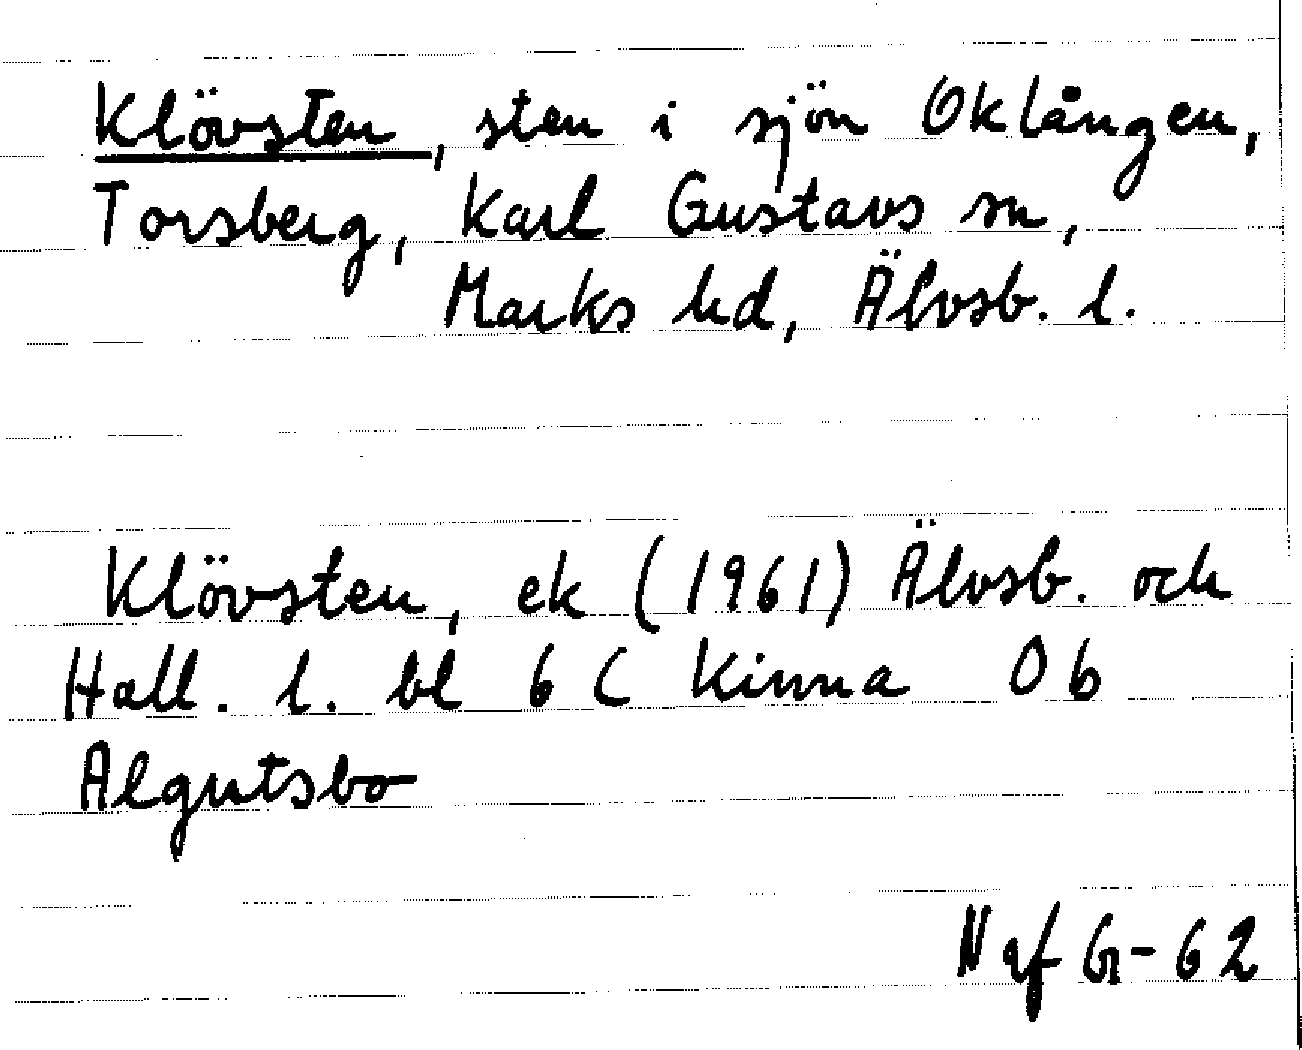 Klövsten, sten i sjön Oklången,
Torsberg, Karl Gustavs sn,
Marks hd, Älvsb. l.
Klövsten, ek (1961) Älvsb. och
Hall. l. bl 6 C Kinna 0 b
Algutsbo
Naf G-62